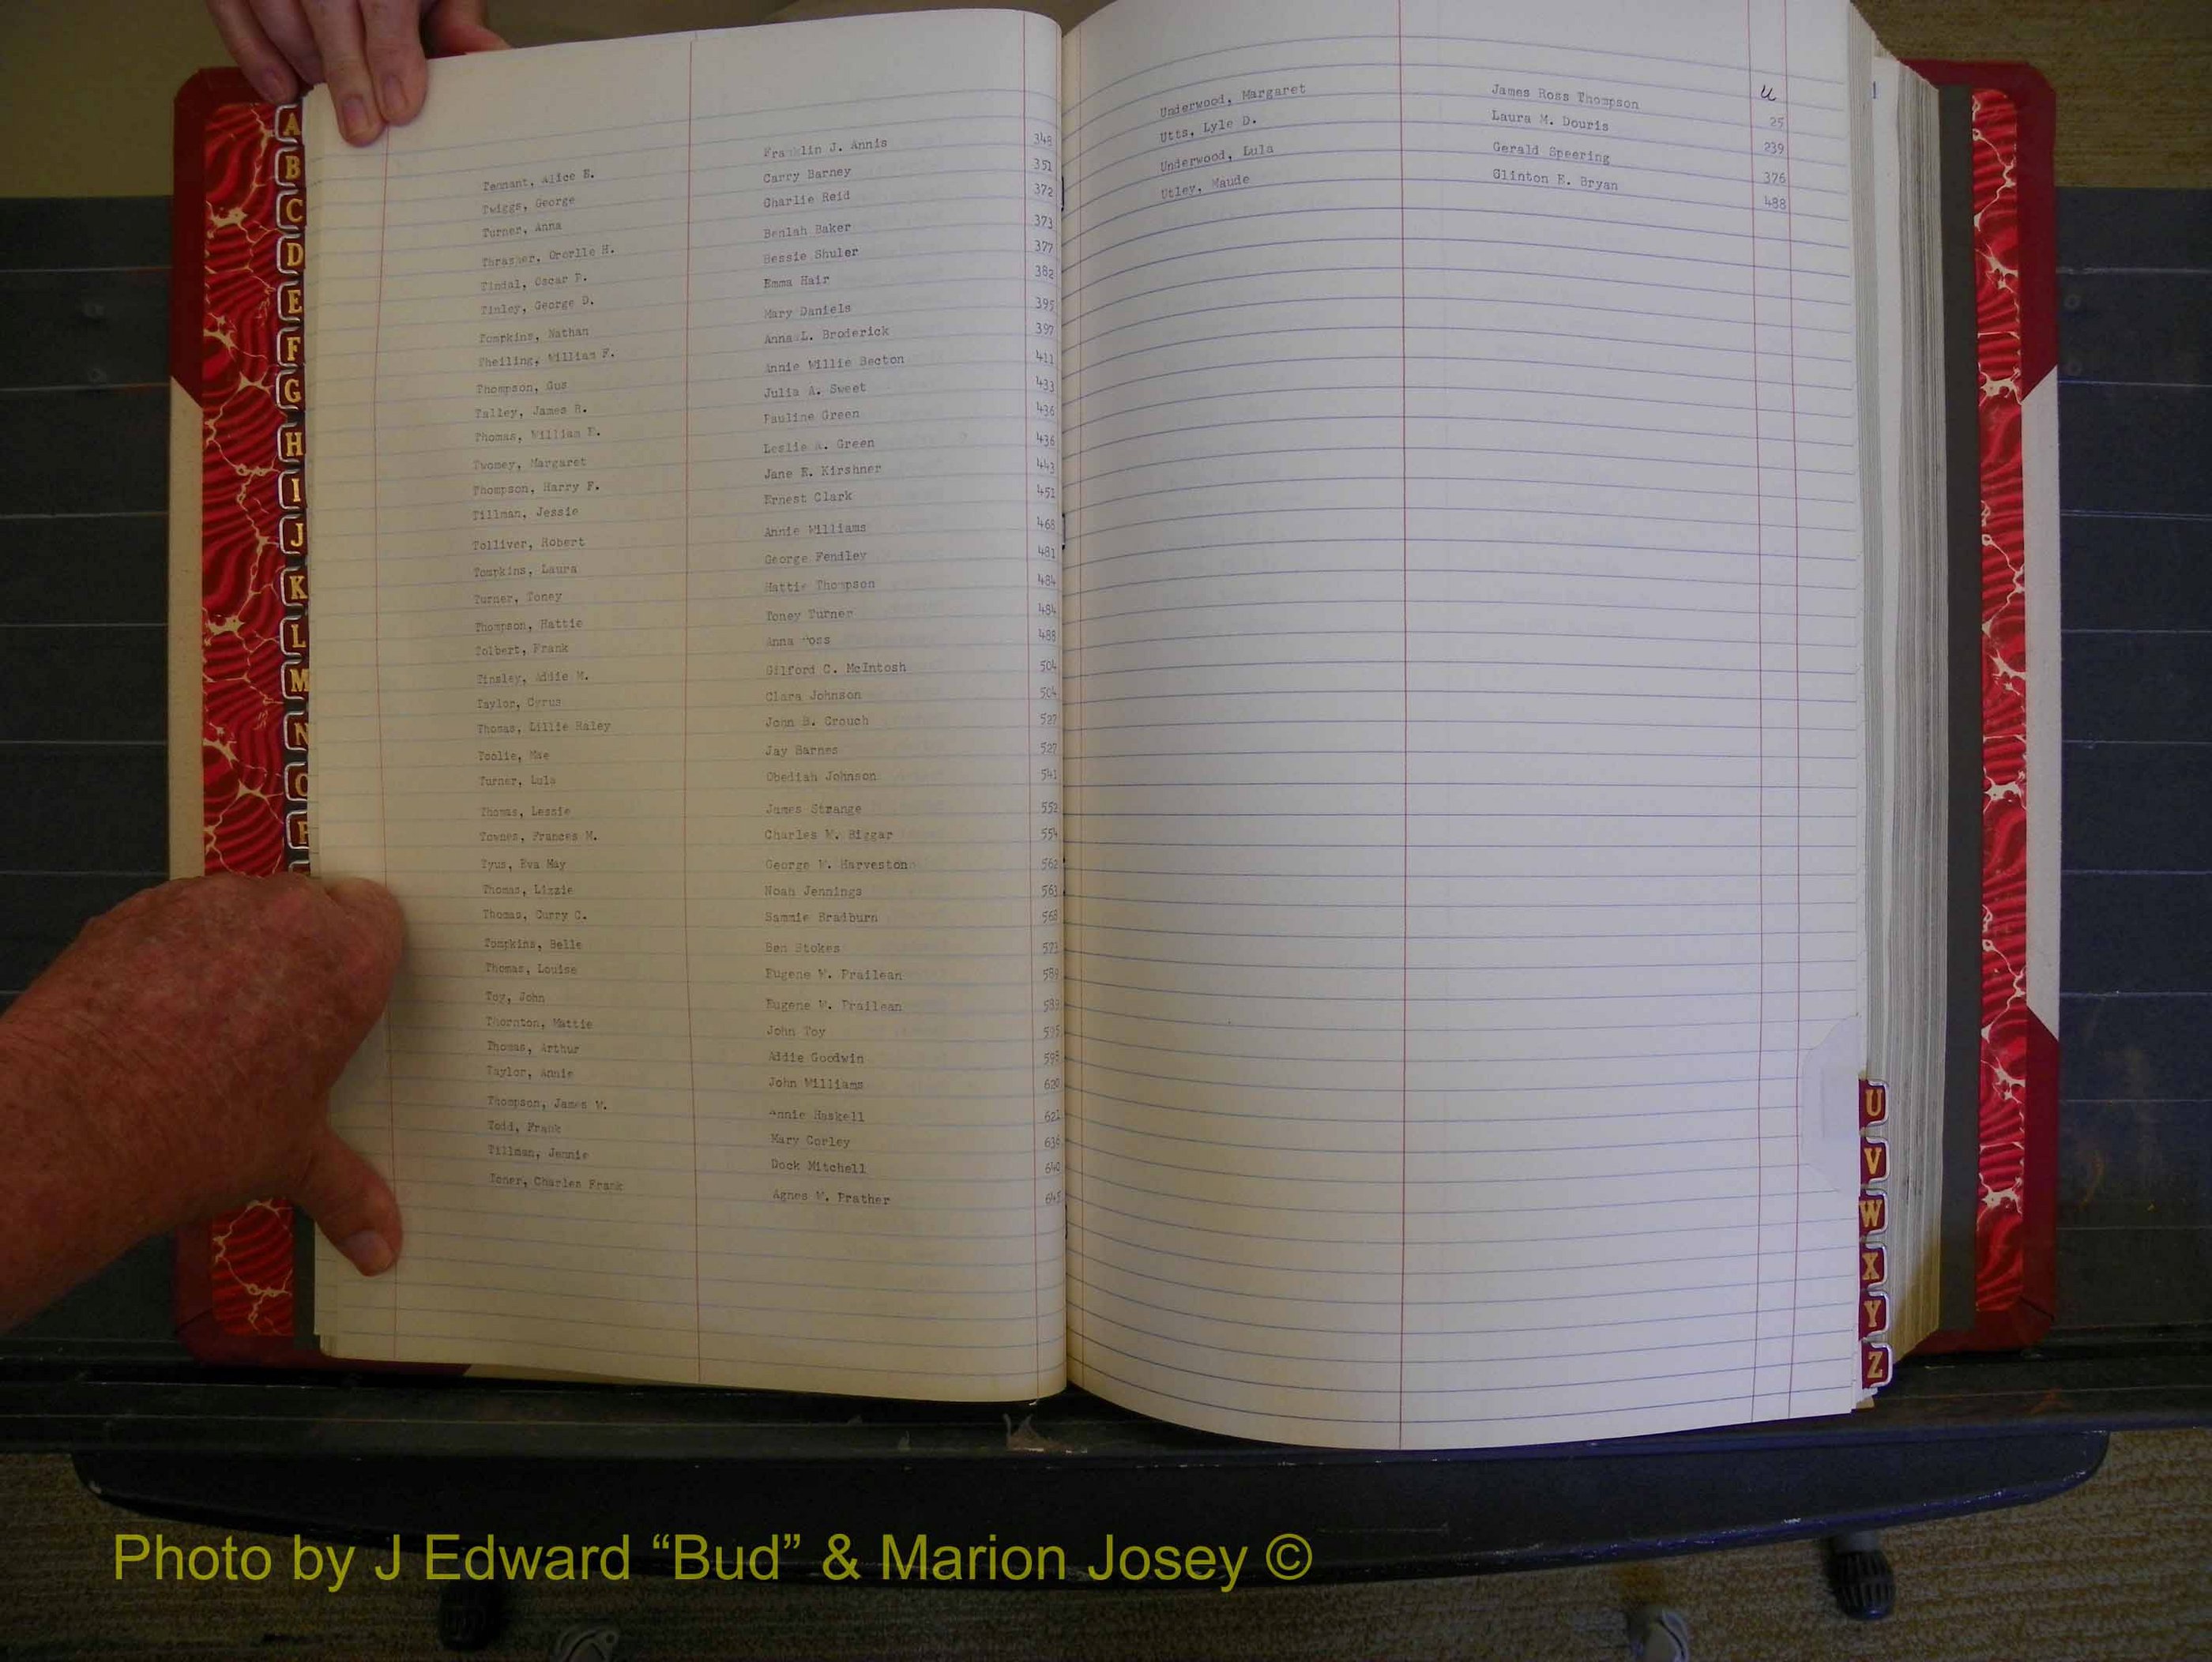 Tennant, Alice E. Franklin J. Annis 348
Twiggs, George Carry Barney 351
Turner, Anna Charlie Reid 372
Thrasher, Ororlle H. Beulah Baker 373
Tindal, Oscar P. Bessie Shuler 377
Tinley, George D. Emma Hair 382
Tompkins, Nathan Mary Daniels 395
Theiling, William F. Anna L. Broderick 397
Thompson, Gus Annie Willie Becton 411
Talley, James R. Julia A. Sweet 433
Thomas, William E. Pauline Green 436
Twomey, Margaret Leslie A. Green 436
Thompson, Harry F. Jane E. Kirshner 443
Tillman, Jessie Ernest Clark 451
Tolliver, Robert Annie Williams 468
Tompkins, Laura George Fendley 481
Turner, Toney Hattie Thompson 484
Thompson, Hattie Toney Turner 484
Tolbert, Frank Anna 488
Tinsley, Addie M. Gilford C. McIntosh 504
Taylor, Cyrus Clara Johnson 504
Thomas, Lillie Raley John B. Crouch 527
Toolie, Mae Jay Barnes 527
Turner, Lula Obediah Johnson 541
Thomas, Lessie James Strange 552
Townes, Frances M. Charles W. Biggar 554
Tyus, Eva May George W. Harveston 562
Thomas, Lizzie Noah Jennings 563
Thomas, Curry C. Sammie Bradburn 568
Tompkins, Belle Ben Stokes 573
Thomas, Louise Eugene W. Prailean 589
Toy, John Eugene W. Prailean 589
Thornton, Mattie John Toy 595
Thomas, Arthur Addie Goodwin 595
Taylor, Annie John Williams 620
Thompson, James W. Annie Haskell 621
Todd, Frank Mary Corley 636
Tillman, Jennie Dock Mitchell 640
Toner, Charles Frank Agnes W. Prather 645
U
Underwood, Margaret James Ross Thompson 25
Utts, Lyle D. Laura M. Douris 239
Underwood, Lula Gerald Speering 376
Utley, Maude Clinton E. Bryan 488
1
A
B
C
D
E
F
G
H
I
J
K
L
M
N
O
P
U
V
W
X
Y
Z
Photo by J Edward “Bud” & Marion Josey ©